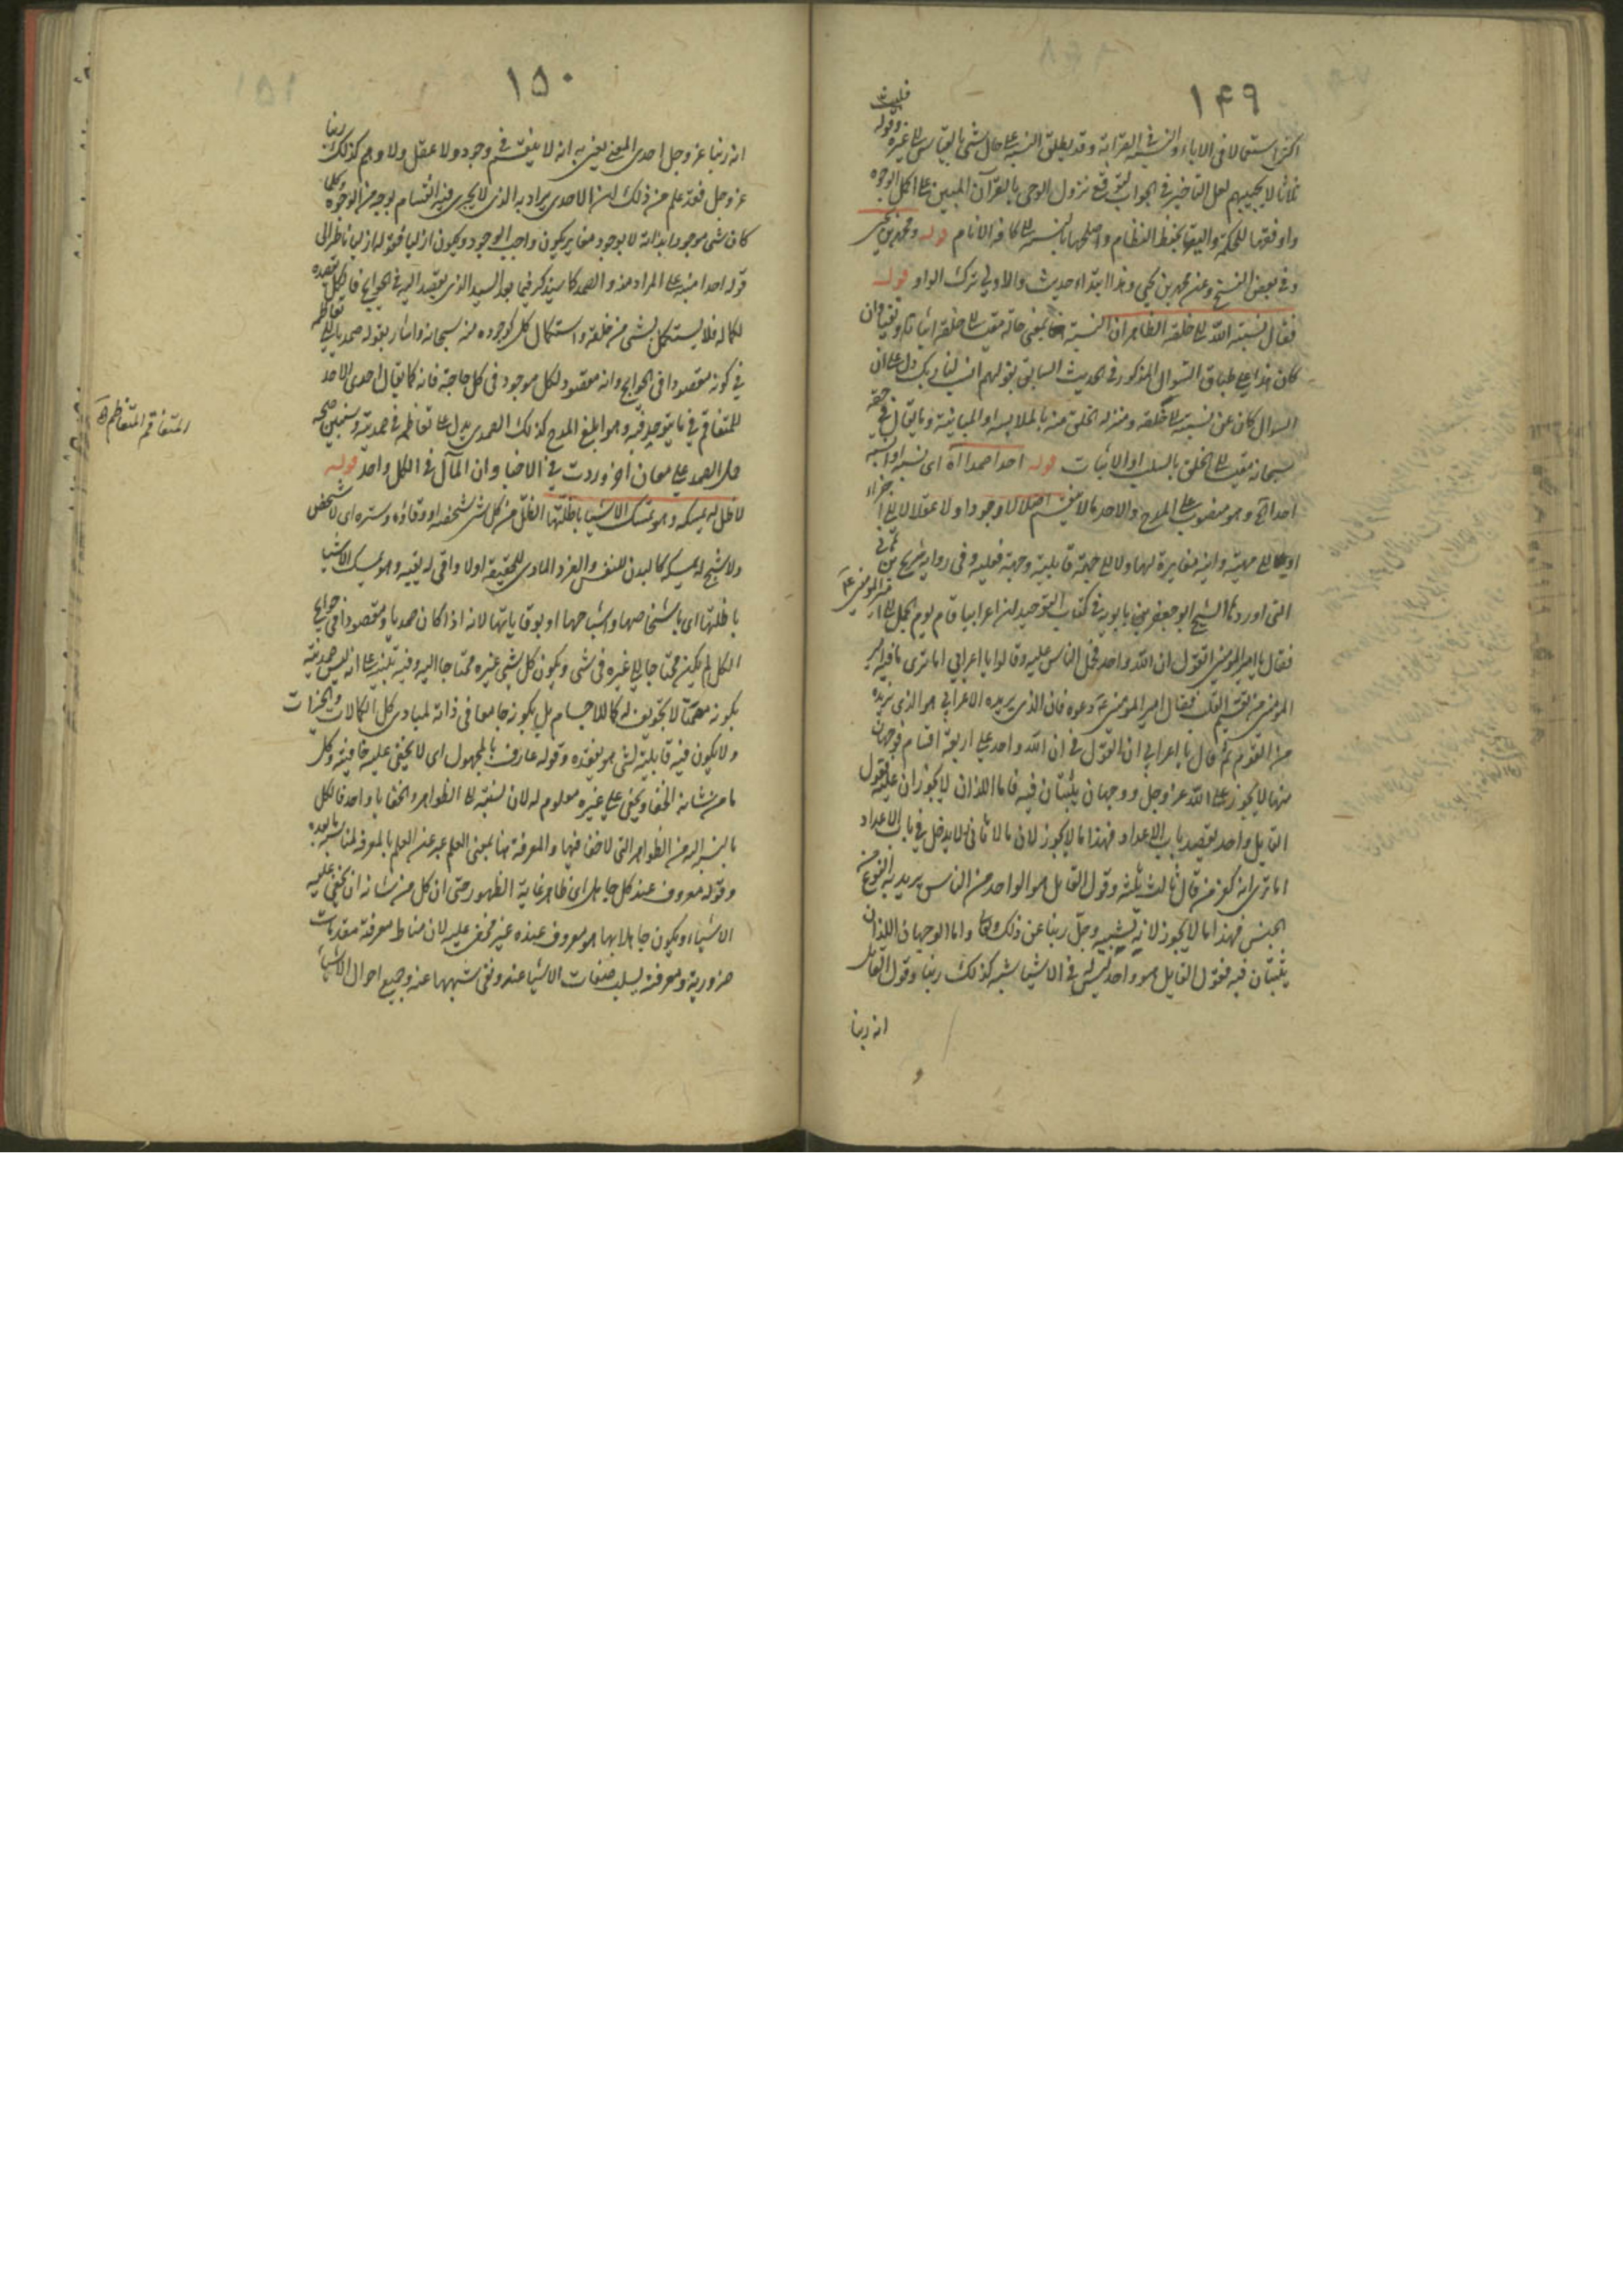 ١٤٩
اكثر استعمالا فى الاباء والنسبة فى القرابة وقد يطلق النسبة على حال شئ بالقياس الى غيره وقوله فلبث
ثلاثا لا يجيبهم لعل التاخير فى الجواب لتوقع نزول الوحى بالقرآن المبين على اكمل الوجوه
واوفقها للحكمة واليقها بحفظ النظام واصلحها بالنسبة الى كافة الانام قوله ومحمد بن يحيى
وفى بعض النسخ وعن محمد بن يحيى وهذا ابتداء حديث والاولى ترك الواو قوله
فقال نسبة الله الى خلقه الظاهر ان النسبة بمعنى حاله مقيسا الى خلقه اثباتا ونفيا وان
كان هذا على طباق السؤال المذكور فى الحديث السابق بقولهم انسب لنا ربك دل على ان
السؤال كان عن نسبته الى خلقه ومنزلة الخلق منه بالملابسة او المباينة وما يقال فى حقه
سبحانه مقيسا الى الخلق بالسلب او الاثبات قوله احدا صمدا اه اى نسبه او انسبه
احدا اه وهو منصوب على المدح والاحد ما لا ينقسم اصلا لا وجودا ولا عقلا لا الى اجزاء
ولا الى مهية وانية مغايرة لها ولا الى جهة قابلية وجهة فعلية وفى رواية شريح بن هانى
التى اوردها الشيخ ابو جعفر بن بابويه فى كتاب التوحيد ان اعرابيا قام يوم الجمل الى امير المومنين ع
فقال يا امير المومنين اتقول ان الله واحد فحمل الناس عليه وقالوا يا اعرابى اما ترى ما فيه امير
المومنين من تقسيم القلب فقال امير المومنين ع دعوه فان الذى يريده الاعرابى هو الذى نريده
من القوم ثم قال يا اعرابى ان القول فى ان الله واحد على اربعة اقسام فوجهان
منها لا يجوز على الله عز وجل ووجهان يثبتان فيه فاما اللذان لا يجوزان عليه فقول
القايل واحد يقصد باب الاعداد فهذا ما لا يجوز لان ما لا ثانى له لا يدخل فى باب الاعداد
اما ترى انه كفر من قال ثالث ثلثة وقول القايل هو الواحد من الناس يريد به النوع من
الجنس فهذا ما لا يجوز لانه تشبيه وجل ربنا عن ذلك وتعالى واما الوجهان اللذان
يثبتان فيه فقول القايل هو واحد ليس له فى الاشياء شبه كذلك ربنا وقول القايل
انه ربنا
١٥٠
انه ربنا عز وجل احدى المعنى يعنى به انه لا ينقسم فى وجود ولا عقل ولا وهم كذلك ربنا
عز وجل فقد علم من ذلك ان الاحدى يراد به الذى لا يجرى فيه انقسام بوجه من الوجوه وكلما
كان شئ موجودا بذاته لا بوجود مغاير يكون واجب الوجود ويكون ازليا فقوله ازليا ناظر الى
قوله احدا منبه على المراد منه والصمد كما سيذكر فيما بعد السيد الذى يقصد اليه فى الحوايج فالكل يقصده
لكماله فلا يستكمل بشئ من خلقه واستكمال كل كوجوده منه سبحانه واشار بقوله صمديا الى تعاظمه
فى كونه مقصودا فى الحوايج وانه مقصود لكل موجود فى كل حاجة فانه كما يقال احدى للاحد
للمتفاقم فى ما يتوحد فيه وهو ابلغ المدح كذلك الصمدى يدل على تعاظم فى صمديته
حمل الصمد على معان اخر وردت فى الاخبار وان المآل فى الكل واحد قوله
لا ظل له يمسكه وهو يمسك الاشياء باظلتها الظل من كل شئ شخصه او وقاؤه وستره اى لا شخص
ولا شبح له يمسكه كالبدن للنفس والفرد المادى للحقيقة او لا واقى له يقيه وهو يمسك الاشياء
باظلتها اى باشخاصها واشباحها او بوقاياتها لانه اذا كان صمديا ومقصودا فى حوايج
الكل لم يكن محتاجا الى غيره فى شئ ويكون كل شئ غيره محتاجا اليه وفيه تنبيه على انه ليس صمديته
بكونه مصمتا لا تجويف له كالاجسام بل بكونه جامعا فى ذاته لمبادى كل الكمالات والخيرات
ولا يكون فيه قابلية لشئ هو يفقده وقوله عارف بالمجهول اى لا يخفى عليه خافية وكل
ما من شانه الخفاء ويخفى على غيره معلوم له لان نسبته الى الظواهر والخفايا واحد فالكل
بالنسبة اليه من الظواهر التى لا خفاء فيها والمعرفة هنا بمعنى العلم عبر عن العلم بالمعرفة لمناسبة ما بعده
وقوله معروف عند كل جاهل اى ظاهر غاية الظهور حتى ان كل من شانه ان يخفى عليه
الاشياء ويكون جاهلا بها هو معروف عنده غير مخفى عليه لان مناط معرفته مقدمات
ضرورية ومعرفته بسلب صفات الاشياء عنه ونفى شبهها عنه وجميع احوال الاشياء
المتفاقم المتعاظم